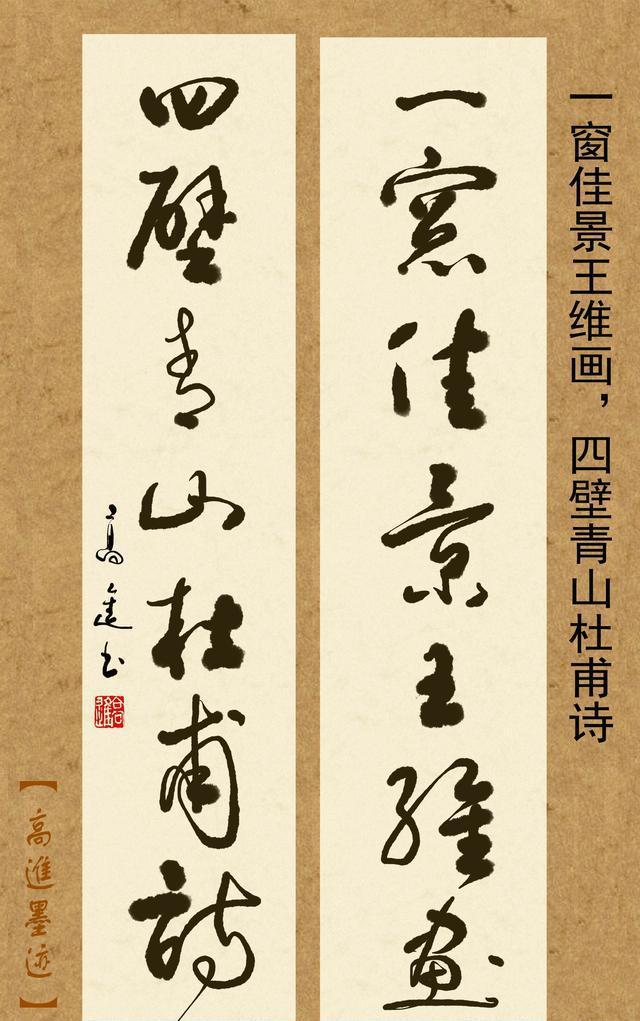 一窗佳景王维画，四壁青山杜甫诗
一窓佳景王維畫
四壁青山杜甫詩
高進书
高進
【高進墨迹】